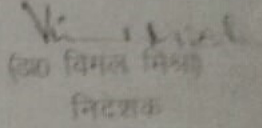 (डा० विमल मिश्रा)
निदेशक